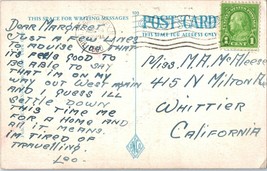 THIS SPACE FOR WRITING MESSAGES
POST CARD
THIS SPACE FOR ADDRESS ONLY
DEAR MARGARET
JUST A FEW LINES
TO ADVISE THAT
ITS REAL GOOD TO
BE ABLE TO SAY
THAT IM ON MY
WAY OUT WEST AGAIN
AND I GUESS ILL
SETTLE DOWN
THIS TIME ME
FOR A HOME AND
ALL IT MEANS.
IM TIRED OF
TRAVELLING.
LOO.
MISS. M.A. MCALEESE
415 N MILTON
WHITTIER
CALIFORNIA
1 CENT 1